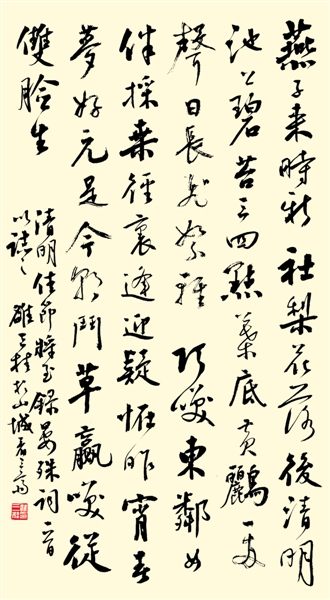 燕子来時新社梨花落後清明
池上碧苔三四點葉底黄鸝一兩
聲日長飛絮輕 巧笑東鄰女
伴採桑徑裏逢迎疑怪昨宵春
夢好元是今朝鬥草贏笑從
雙臉生
清明佳節將至録晏殊詞一首
以誌之 雄 村於山城